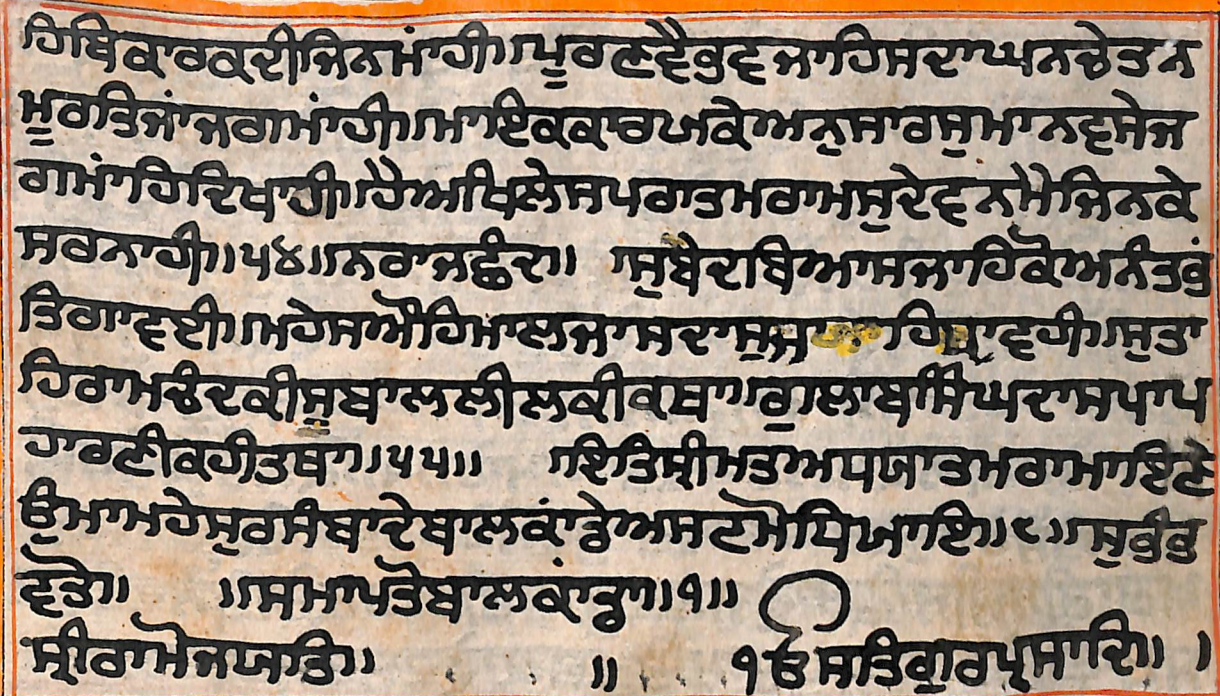 ਹਿਬਿਕਾਰਕਦੀਜਿਨਮਾਂਹੀ॥ਪੂਰਣਵੈਭਵਜਾਹਿਸਦਾਘਨਚੇਤਨ
ਮੂਰਤਿਜਾਂਜਗਮਾਂਹੀ॥ਮਾਇਕਕਾਰਯਕੇਅਨੁਸਾਰਸੁਮਾਨਵਸੇਜ
ਗਮਾਂਹਿਦਿਖਾਹੀ॥ਹੈਅਖਿਲੇਸਪਰਾਤਮਰਾਮਸੁਦੇਵਨਮੋਜਿਨਕੇ
ਸਰਨਾਹੀ॥੫੪॥ਨਰਾਜਛੰਦ॥ ॥ਸੁਬੇਦਬਿਆਸਜਾਹਿਕੋਅਨੰਤਭੰ
ਤਿਗਾਵਈ॥ਮਹੇਸਔਹਿਮਾਲਜਾਸਦਾਸੁਜ ਹਿਧਾਵਹੀ॥ਸੁਤਾ
ਹਿਰਾਮਚੰਦਕੀਸੁਬਾਲਲੀਲਕੀਕਥਾ॥ਗੁਲਾਬਸਿੰਘਦਾਸਪਾਪ
ਹਾਰਣੀਕਹੀਤਥਾ॥੫੫॥ ॥ਇਤਿਸ੍ਰੀਮਤਅਧਯਾਤਮਰਾਮਾਇਣੇ
ਉਮਾਮਹੇਸੁਰਸੰਬਾਦੇਬਾਲਕਾਂਡੇਅਸਟਮੋਧਿਆਇ॥੮॥ਸੁਭੰਭ
ਵਤੋ॥ ॥ਸਮਾਪਤੋਬਾਲਕਾਂਡਾ॥੧॥
ਸ੍ਰੀਰਾਮੋਜਯਤਿ॥ ॥ ੴਸਤਿਗੁਰਪ੍ਰਸਾਦਿ॥ ।